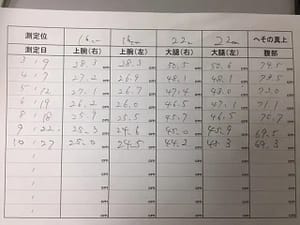 測定位 16cm 16cm 22cm 22cm へその真上
測定日 上腕(右) 上腕(左) 大腿(右) 大腿(左) 腹部
3 / 9 28.3 cm 28.3 cm 50.5 cm 50.6 cm 79.5 cm
4 / 7 27.2 cm 26.9 cm 48.1 cm 48.1 cm cm
5 / 12 27.1 cm 26.7 cm 47.4 cm 48.0 cm 73.0 cm
6 / 19 26.2 cm 26.0 cm 46.5 cm 47.1 cm 71.1 cm
8 / 18 25.9 cm 25.5 cm 45.7 cm 46.5 cm 70.7 cm
9 / 22 25.3 cm 24.6 cm 45.0 cm 45.9 cm 69.5 cm
10 / 27 25.0 cm 24.5 cm 44.2 cm 45.3 cm 69.3 cm
/ cm cm cm cm cm
/ cm cm cm cm cm
/ cm cm cm cm cm
/ cm cm cm cm cm
/ cm cm cm cm cm